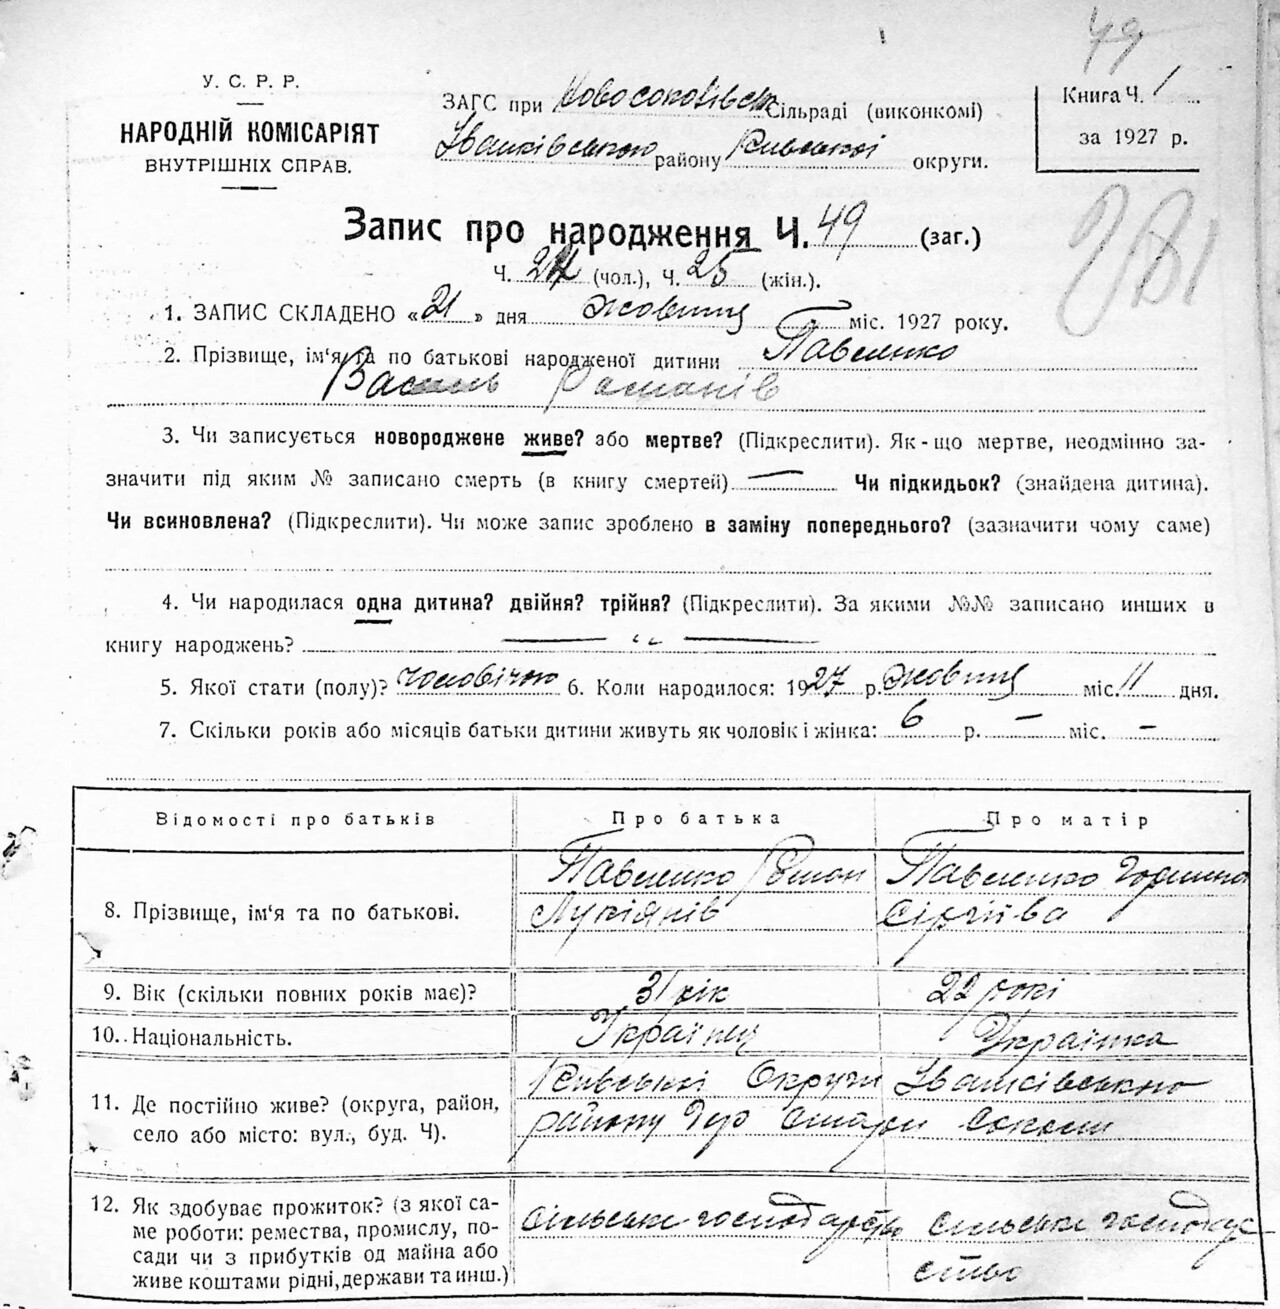 49
У. С. Р. Р.
НАРОДНІЙ КОМІСАРІЯТ
ВНУТРІШНІХ СПРАВ.
ЗАГС при Новосоколівськ Сільраді (виконкомі)
Іванківського району Київської округи.
Книга Ч. 1
за 1927 р.
Запис про народження Ч. 49 (заг.)
Ч. 24 (чол.), Ч. 25 (жін.).
281
1. ЗАПИС СКЛАДЕНО «21» дня Жовтня міс. 1927 року.
2. Прізвище, ім'я та по батькові народженої дитини Павленко
Василь Романів
3. Чи записується новороджене живе? або мертве? (Підкреслити). Як-що мертве, неодмінно за-
значити під яким № записано смерть (в книгу смертей) — Чи підкидьок? (знайдена дитина).
Чи всиновлена? (Підкреслити). Чи може запис зроблено в заміну попереднього? (зазначити чому саме)
4. Чи народилася одна дитина? двійня? трійня? (Підкреслити). За якими №№ записано инших в
книгу народжень? — " —
5. Якої стати (полу)? чоловічою 6. Коли народилося: 1927 р. Жовтня міс. 11 дня.
7. Скільки років або місяців батьки дитини живуть як чоловік і жінка: 6 р. — міс. —
Відомості про батьків Про батька Про матір
8. Прізвище, ім'я та по батькові. Павленко Роман Лукіянів
Павленко Горпина Сіргіїва
9. Вік (скільки повних років має)? 31 рік 22 рокі
10. Національність. Українец Українка
11. Де постійно живе? (округа, район, Київської Округи Іванківського
село або місто: вул., буд. Ч). району Дер Старі Соколи
12. Як здобуває прожиток? (з якої са-
ме роботи: ремества, промислу, по-
сади чи з прибутків од майна або
живе коштами рідні, держави та инш.)
сільське господарство сільське господар
ство